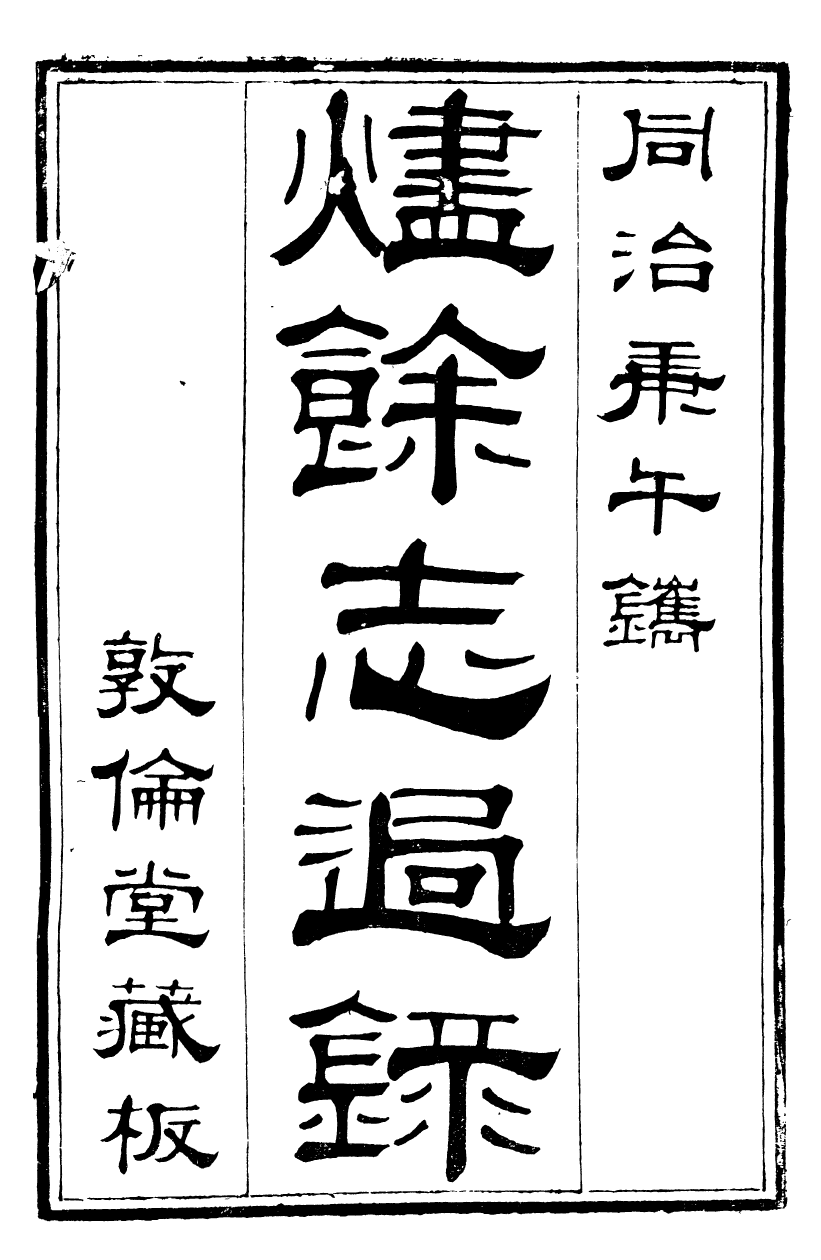 同治庚午鐫
燼餘志過錄
敦倫堂藏板